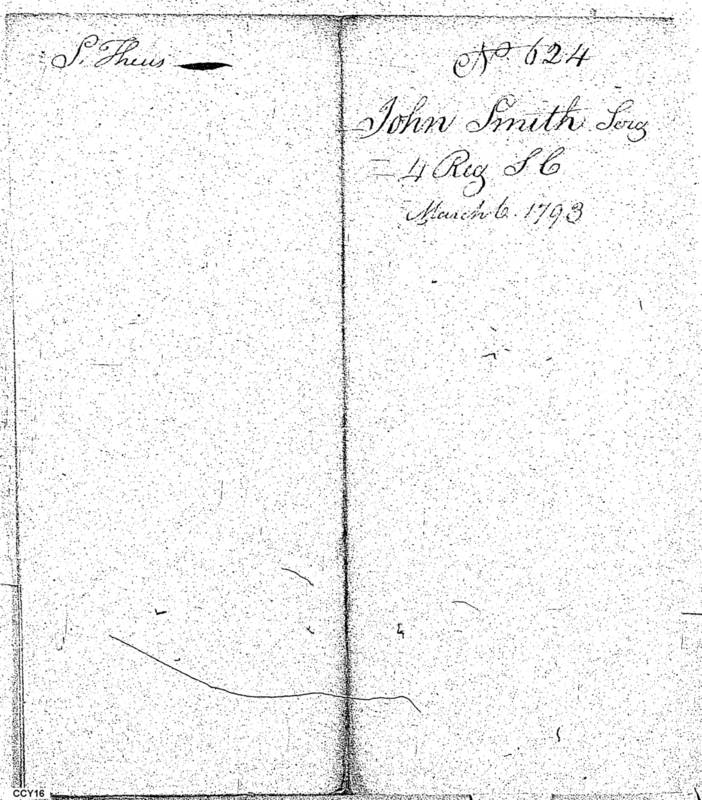 S. Theus
No 624
John Smith Serg
4 Reg S C
March 6. 1793
CCY16